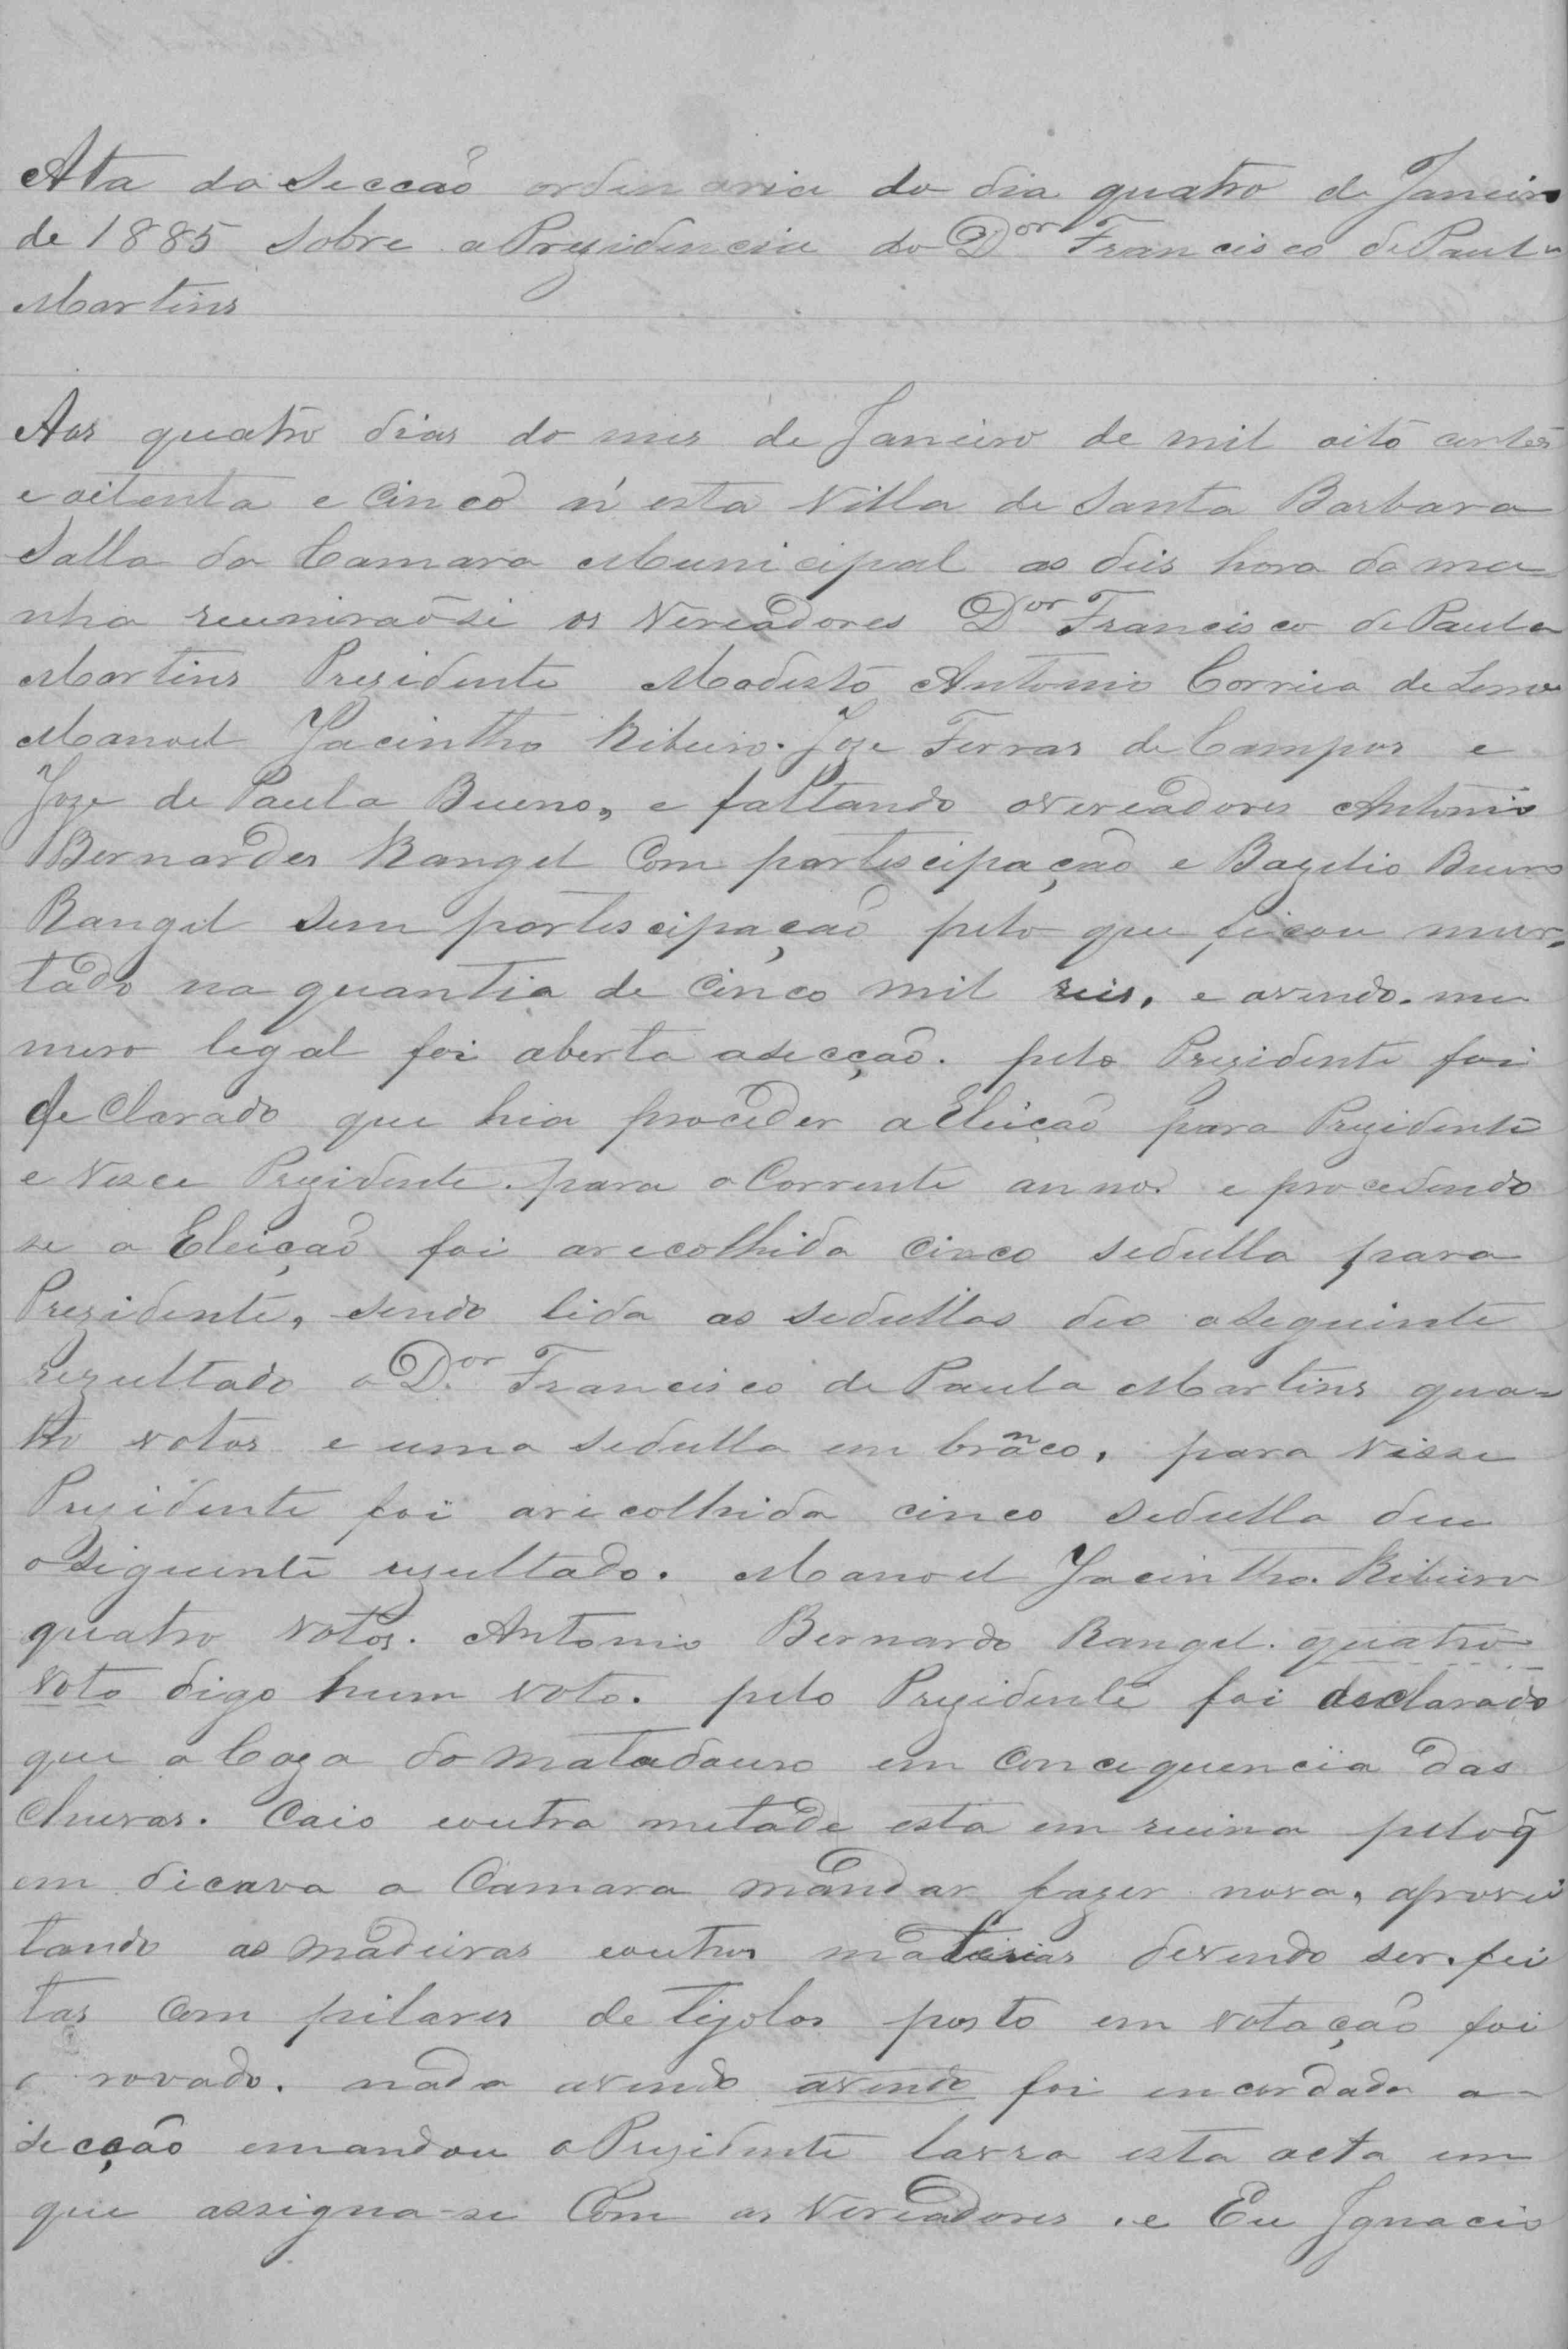 Ata da Secção ordinaria do dia quatro de Janeiro
de 1885 sobre a Prezidencia do Dor Francisco de Paula
Martins
Aos quatro dias do mes de Janeiro de mil oito centos
e oitenta e cinco n'esta Villa de Santa Barbara
Salla da Camara Municipal as deis hora da ma
nha reunirão-si os Vereadores Dor Francisco de Paula
Martins Prezidente Modesto Antonio Correia de Lemos
Manoel Jacintho Ribeiro. Joze Ferras de Campos e
Joze de Paula Bueno, e faltando overeadores Antonio
Bernardes Rangel Com partiscipação e Bazilio Bueno
Rangel sem partiscipação pelo que ficou mur,
tado na quantia de cinco mil reis, e avendo. nu
mero legal foi aberta asecção. pelo Prezidente foi
declarado que hia proceder a Eleição para Prezidente
e Visce Prezidente. para o Corrente anno. e procedendo
se a Eleição foi arecolhida cinco sedulla para
Prezidente, sendo lida as sedullas deo oseguinte
rezultado o Dor Francisco de Paula Martins qua-
tro votos e uma sedulla em branco, para Visse
Prezidente foi aricolhida cinco sedulla deu
oSiguinte rezultado. Manoel Jacintho. Ribeiro
quatro votos. Antonio Bernardo Rangel. quatro
voto digo hum voto. pelo Prezidente foi declarado
que a Caza do matadouro em Concequencia das
Chuvas. Caio eoutra metade esta em ruina peloq̃
em dicava a Camara mandar fazer nova, aprovei
tando as madeiras eoutros materias devendo ser. fei
tas Com pilares de tijolos posto em votação foi
a rovado. nada avendo avendo foi encerdada a-
secção emandou o Prezidente lavra esta acta em
que assigna-se Com os Vereadores. e Eu Ignacio